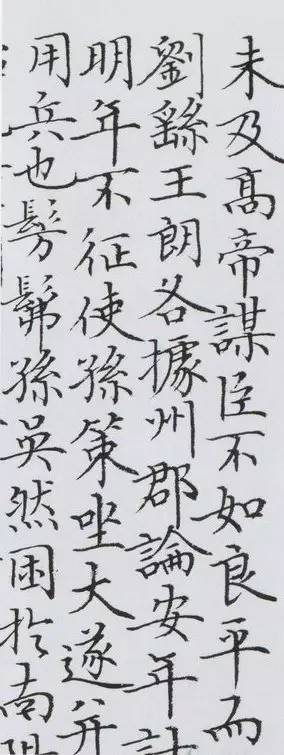 未及髙帝謀臣不如良平而
劉繇王朗各據州郡論安年計
明年不征使孫策坐大遂并
用兵也髣髴孫吳然困扵南